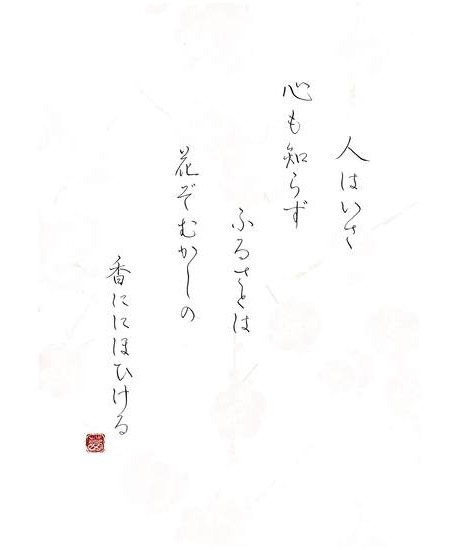 人はいさ
心も知らず
ふるさとは
花ぞむかしの
香ににほひける